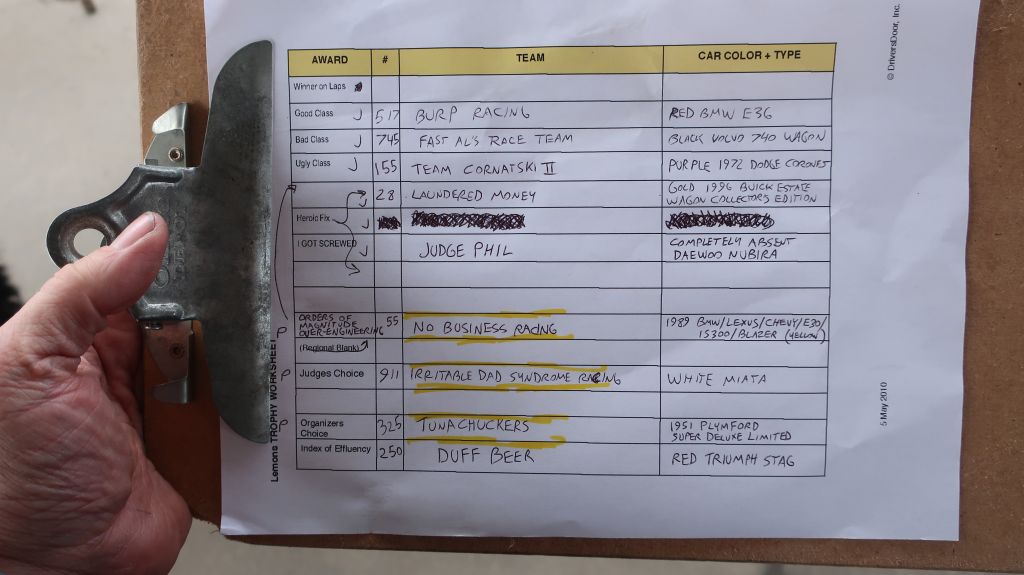 AWARD # TEAM CAR COLOR + TYPE
Winner on Laps
Good Class J 517 BURP RACING RED BMW E36
Bad Class J 745 FAST AL'S RACE TEAM BLACK VOLVO 740 WAGON
Ugly Class J 155 TEAM CORNATSKI II PURPLE 1972 DODGE CORONET
J 28 LAUNDERED MONEY GOLD 1996 BUICK ESTATE
WAGON COLLECTORS EDITION
Heroic Fix J
I GOT SCREWED J JUDGE PHIL COMPLETELY ABSENT
DAEWOO NUBIRA
P ORDERS OF
MAGNITUDE
OVER-ENGINEERING 55 NO BUSINESS RACING 1989 BMW/LEXUS/CHEVY/E30/
IS300/BLAZER (YELLOW)
(Regional Blank)
P Judges Choice 911 IRRITABLE DAD SYNDROME RACING WHITE MIATA
P Organizers
Choice 325 TUNACHUCKERS 1951 PLYMFORD
SUPER DELUXE LIMITED
Index of Effluency 250 DUFF BEER RED TRIUMPH STAG
Lemons TROPHY WORKSHEET
5 May 2010
© DriversDoor, Inc.